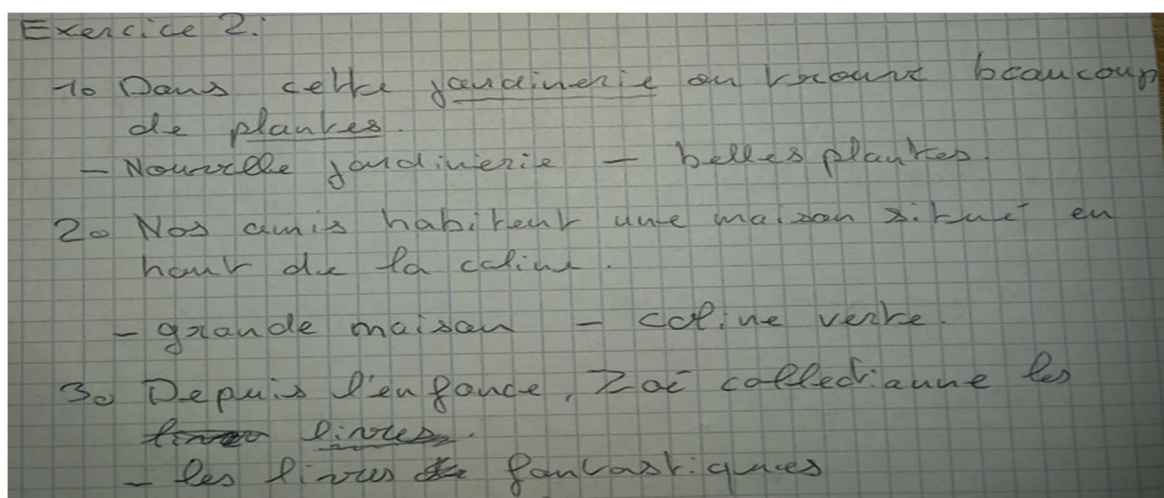 Exercice 2:
1o Dans cette jardinerie on trouve beaucoup
de plantes.
- Nouvelle jardinerie - belles plantes
2o Nos amis habitent une maison situé en
haut de la coline.
- grande maison - coline verte.
3o Depuis l'enfance, Zoé collectionne les
livres.
- les livres fantastiques